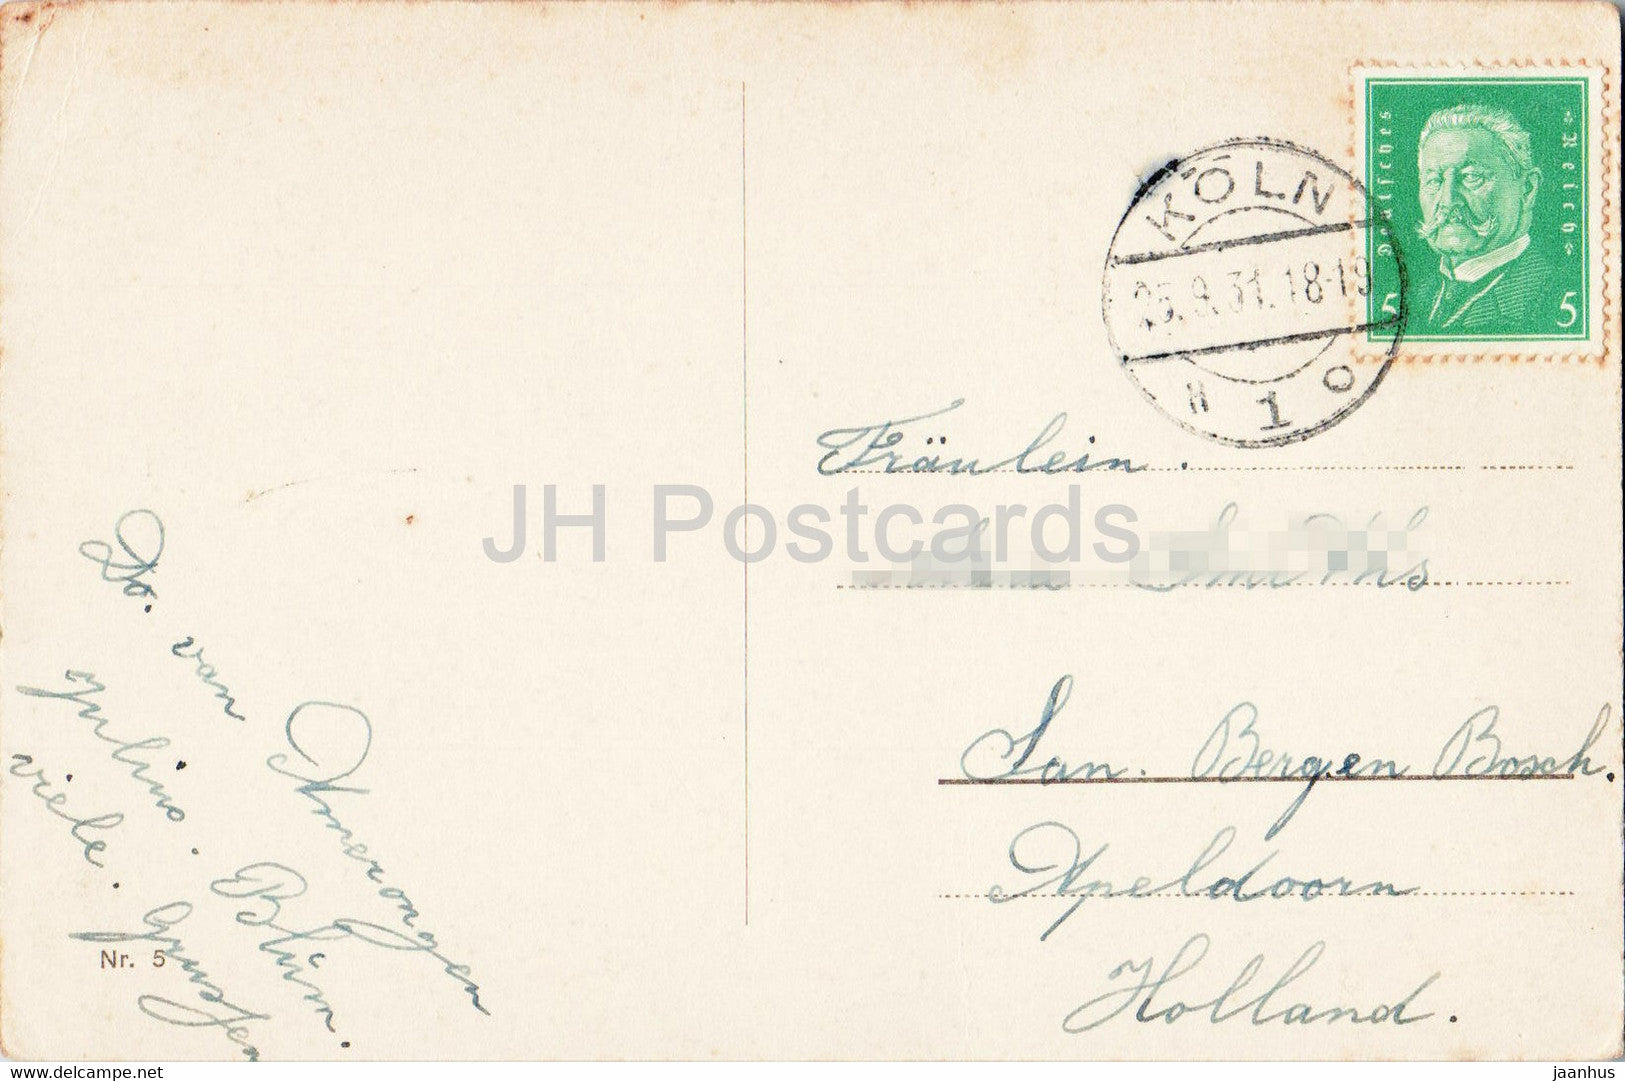 Deutsches Reich
5 5
KÖLN
25.9.31.18-19
1 0
Fräulein.
San. Bergen Bosch.
Apeldoorn
Holland.
Dr. van Amerongen
Julius. Blüm.
viele. Grussen
Nr. 5
JH Postcards
delcampe.net
jaanhus